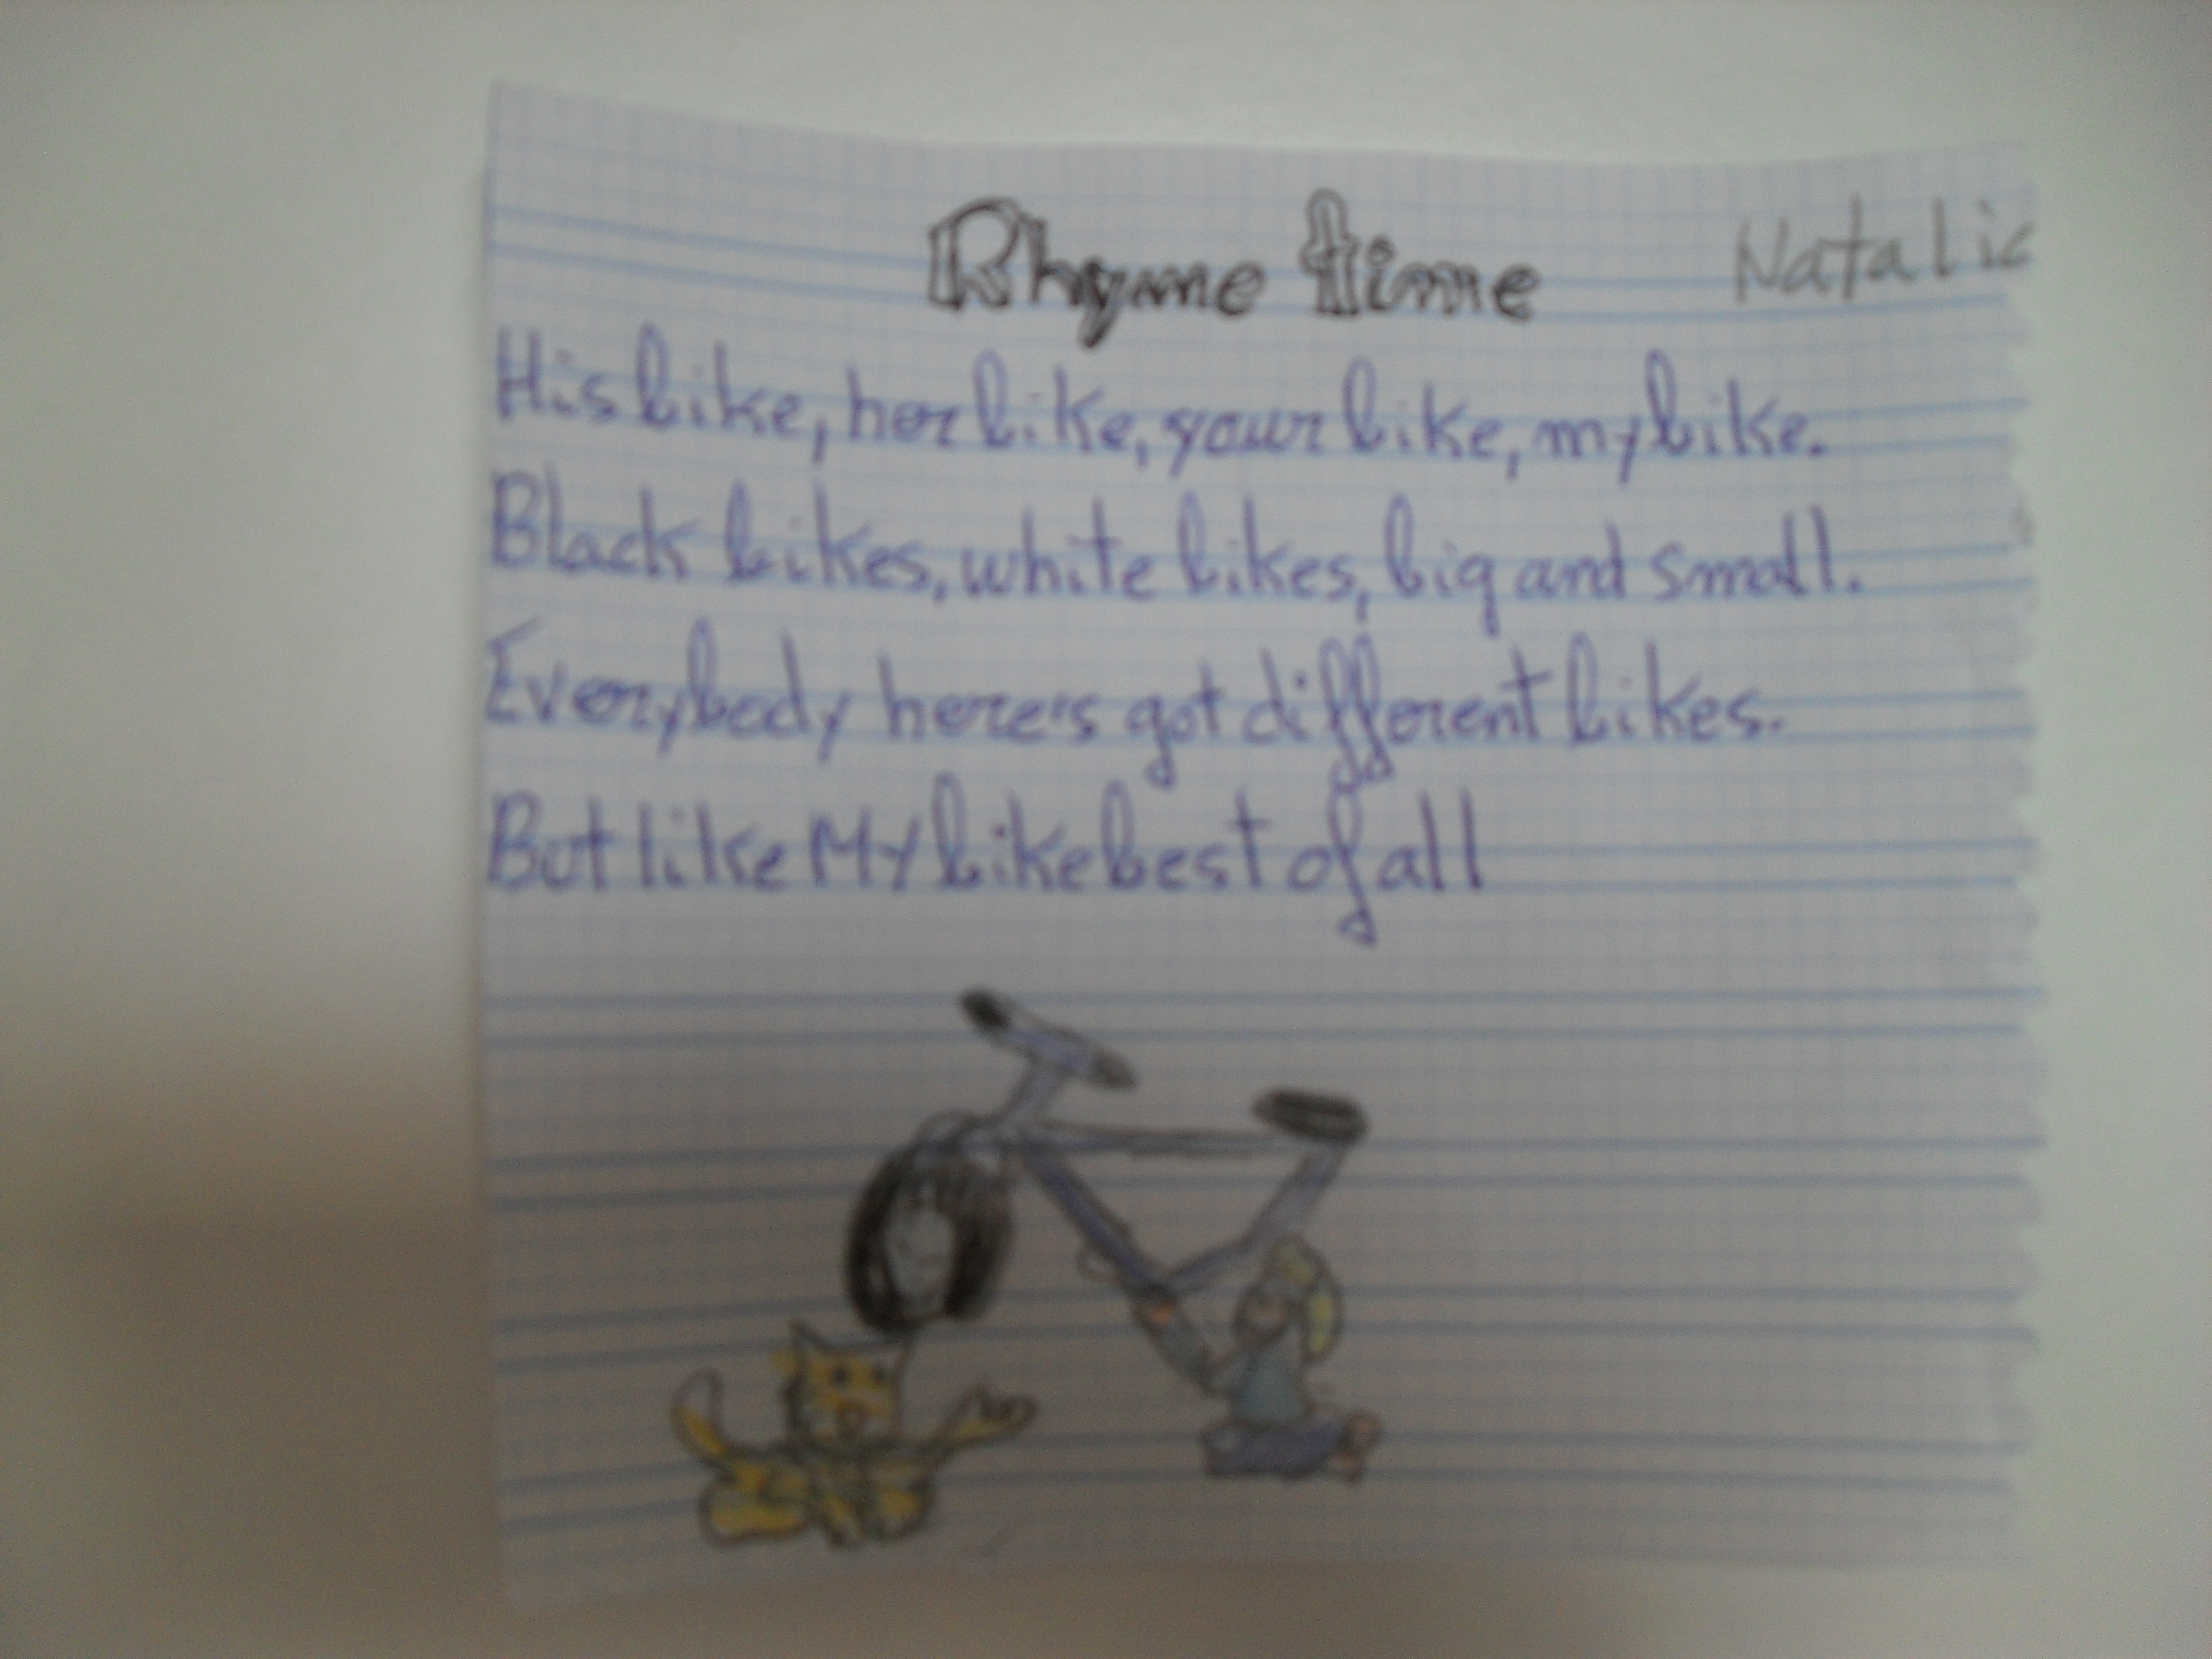 Rhyme time Natalie
His bike, her bike, your bike, my bike.
Black bikes, white bikes, big and small.
Everybody here's got different bikes.
But like My bike best of all